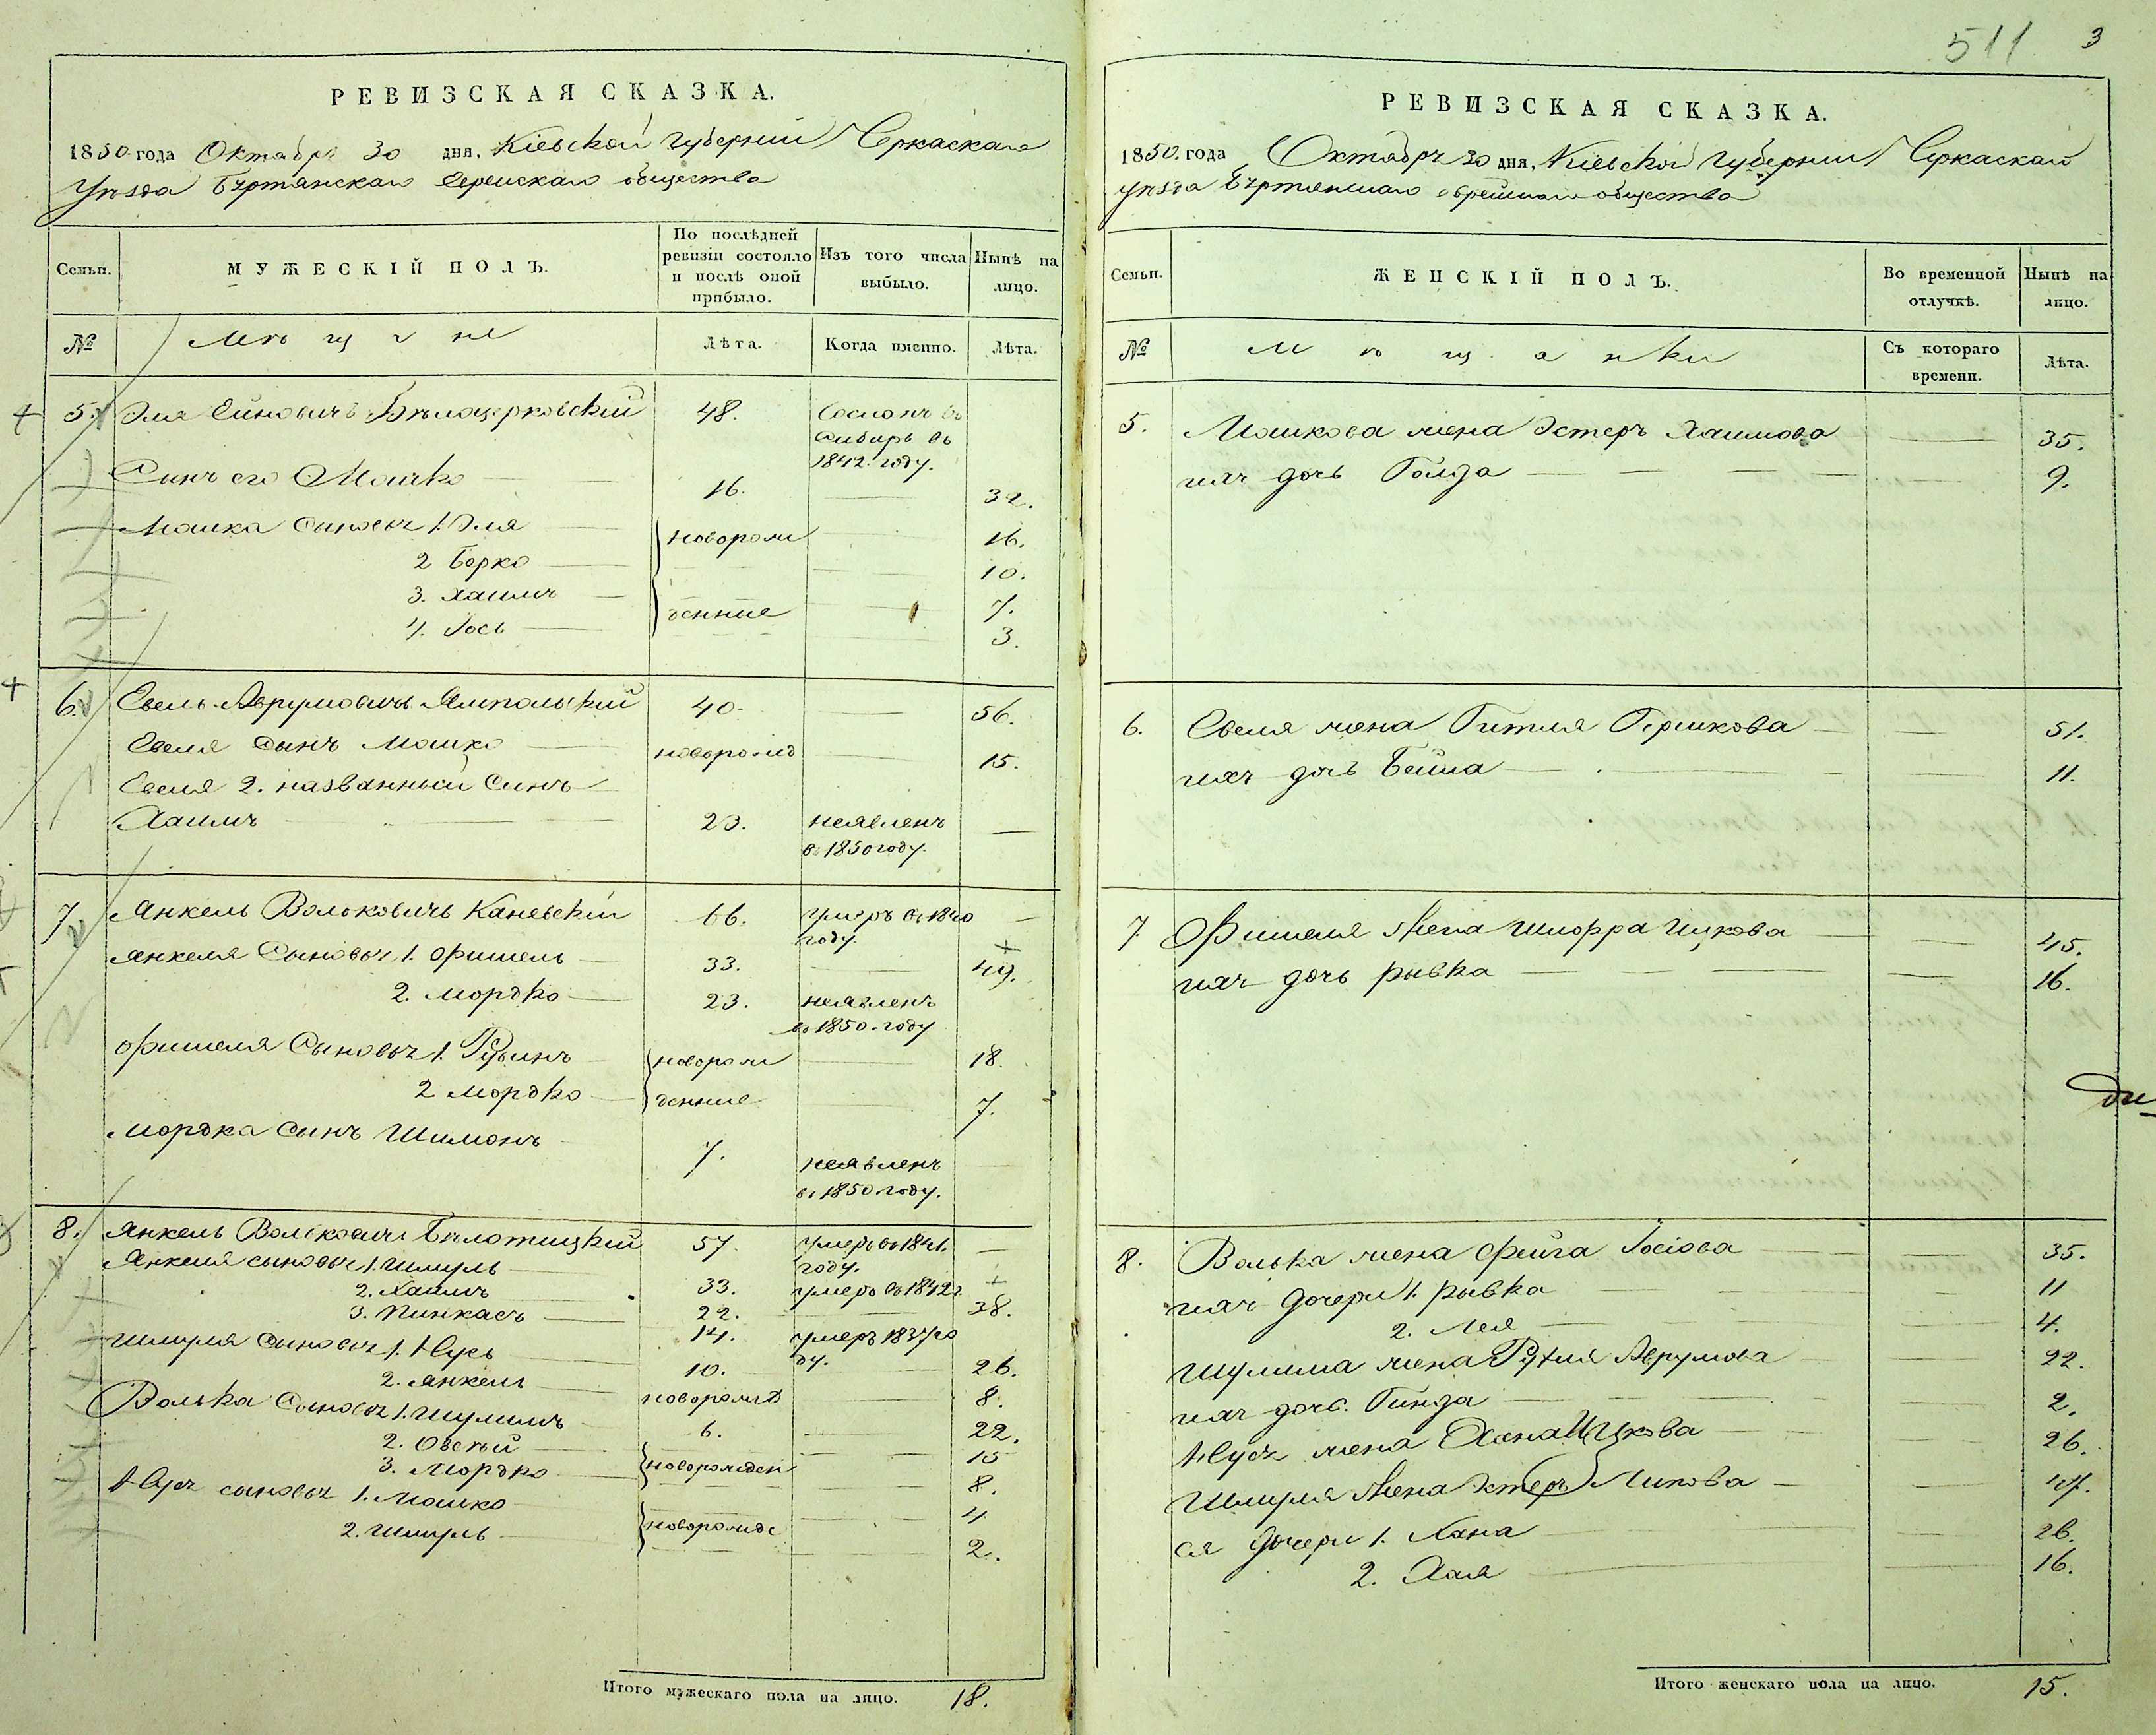 511 3
РЕВИЗСКАЯ СКАЗКА.
1850 года Октября 30 дня, Кіевской Губерніи Черкаскаго
Уѣзда Бѣртянскаго Еврейскаго общества
Семьи. МУЖЕСКІЙ ПОЛЪ. По послѣдней ревизіи состояло и послѣ оной прибыло. Изъ того числа выбыло. Нынѣ на лицо.
№ Мѣщане Лѣта. Когда именно. Лѣта.
5. Эля Ейновичъ Бѣлоцерковскій 48. Сосланъ въ
Сибирь въ
1842 году.
Сынъ его Мошко 16. 32.
Мошка Сыновья 1. Эля новорож 16.
2 Берко 10.
3. Хаимъ денные 7.
4. Іось 3.
6. Евель Аврумовичъ Ямпольскій 40. 56.
Евеля Сынъ Мошко новорожд 15.
Евеля 2. названный Сынъ
Хаимъ 23. неявленъ
в 1850 году.
7 Янкель Волоковичъ Каневскій 66. умеръ в 1840
году.
Янкеля Сыновья 1. Фишель 33. 49.
2. Мордко 23. неявленъ
в 1850 году
Фишеля Сыновья 1. Рувинъ новорож 18.
2 Мордко денные 7.
Мордка Сынъ Шимонъ 7. неявленъ
в 1850 году.
8. Янкель Вольковичъ Бѣлотицкій 57. умеръ въ 1841.
году.
Янкеля сыновья 1. Шмуль 33. умеръ въ 1842 г
2. Хаимъ 22. 38.
3. Пинкасъ 14. умеръ 1837 го
ду.
Шмуля Сыновья 1. Нусь 10. 26.
2. Янкель новорожд 8.
Волька Сыновья 1. Шулимъ 6. 22.
2. Овсѣй новорожден 15
3. Мордко 8.
Нуся сыновья 1. Мошко новорожде 4
2. Шмуль 2.
Итого мужескаго пола на лицо. 18.
РЕВИЗСКАЯ СКАЗКА.
1850 года Октября 30 дня, Кіевской Губерніи Черкаскаго
Уѣзда Бѣртянскаго еврейскаго общества
Семьи. ЖЕНСКІЙ ПОЛЪ. Во временной отлучкѣ. Нынѣ на лицо.
№ Мѣщанки Съ котораго времени. Лѣта.
5. Мошкова жена Эстеръ Хаимова 35.
ихъ дочь Голда 9.
6. Евеля жена Гитля Гершкова 51.
ихъ дочь Бейла 11.
7 Фишеля жена Шпорра Ицкова 45.
ихъ дочь Рывка 16.
8. Волька жена Фейга Іосіова 35.
ихъ дочери 1. Рывка 11
2. Лея 4.
Шулима жена Рухля Аврумова 22.
ихъ дочь. Гинда 2.
Нуся жена Хана Ицкова 26.
Шмуля жена Эстеръ 47.
ея Дочери 1. Хана 26.
2. Хая 16.
Итого женскаго пола на лицо. 15.